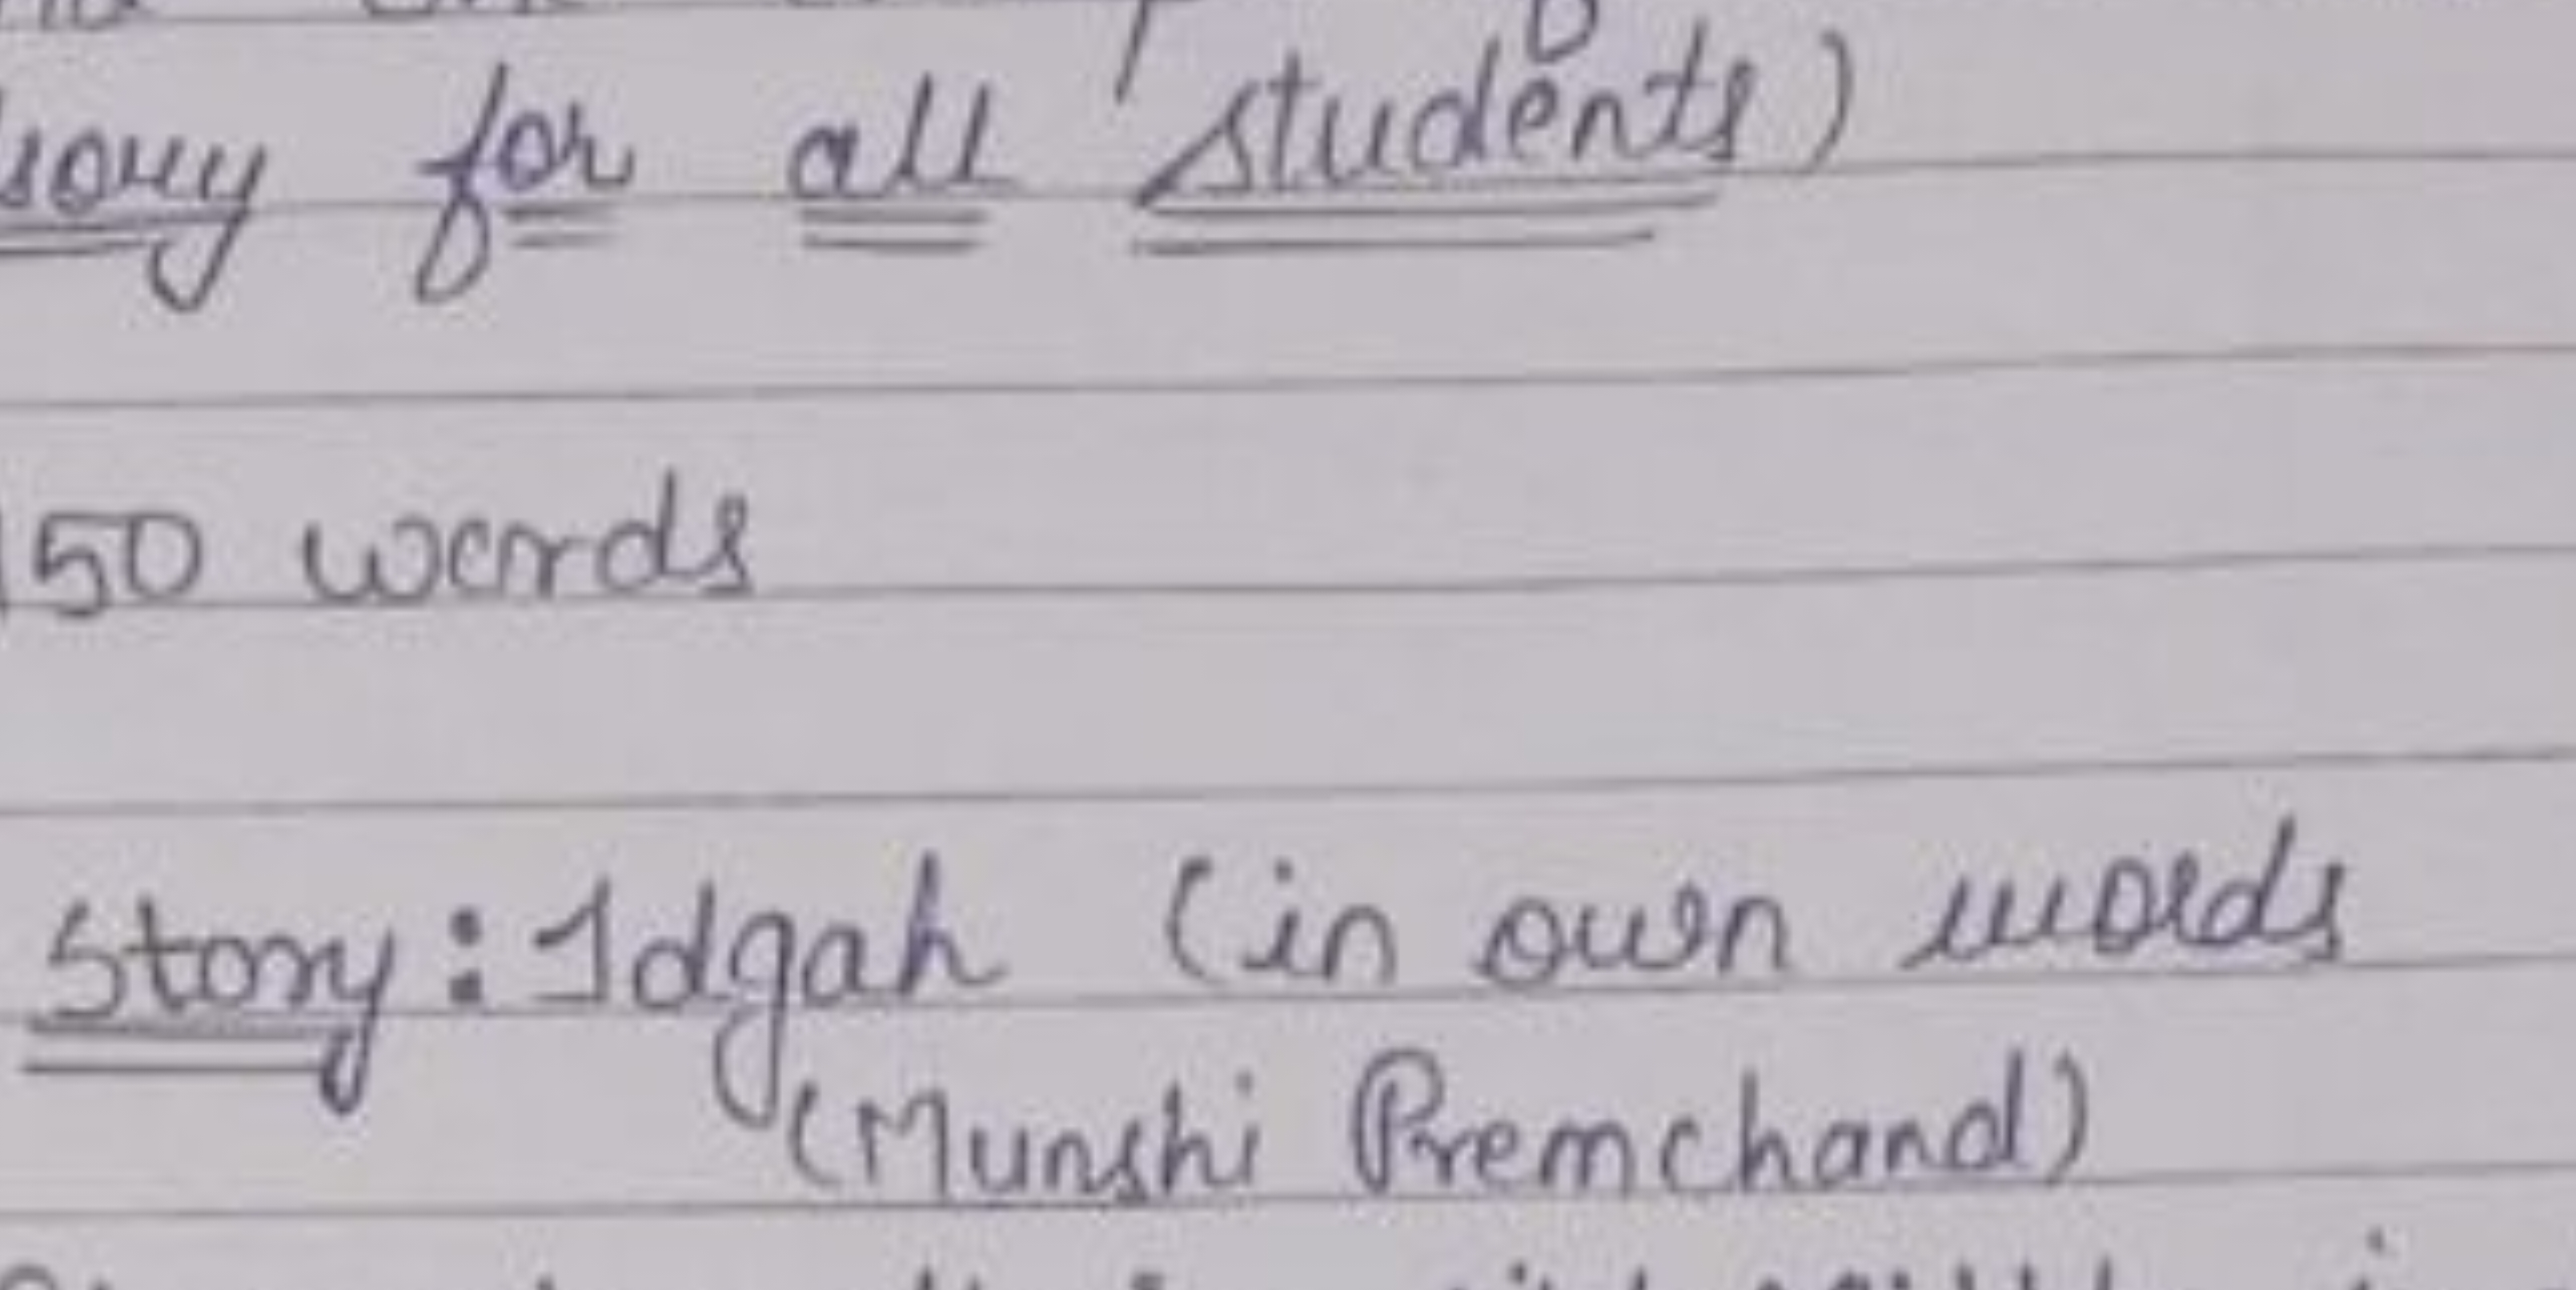 for all students)
150 words
Story: Idgah (in own words
(Munshi Premchand)